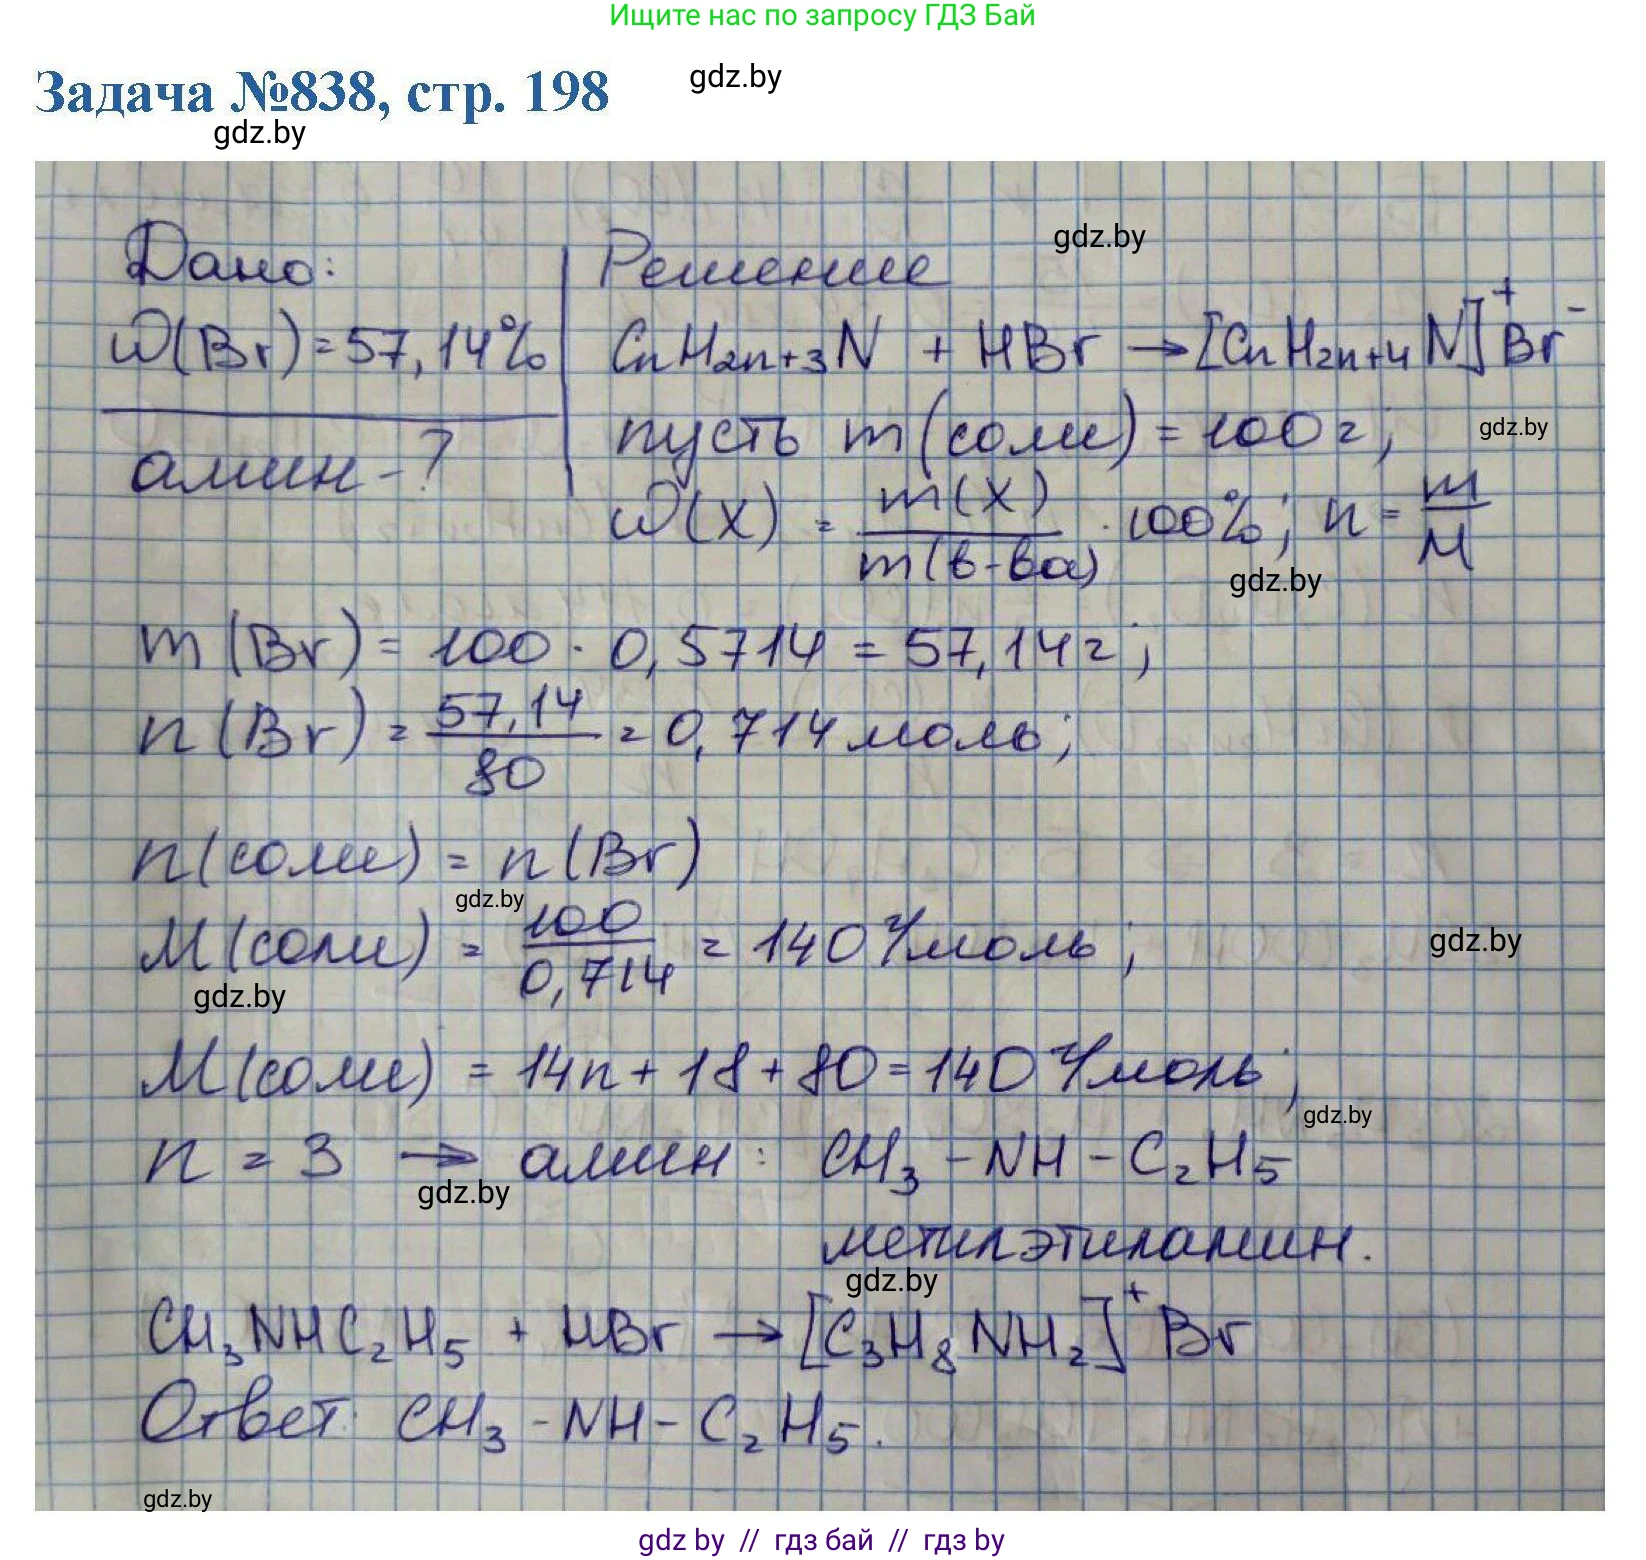 Ищите нас по запросу ГДЗ Бай
Задача №838, стр. 198
gdz.by
gdz.by
Дано:
ω(Br) = 57,14%
амин - ?
Решение
gdz.by
CnH2n+3N + HBr → [CnH2n+4N]⁺Br⁻
пусть m(соли) = 100г;
gdz.by
ω(X) = m(X) / m(в-ва) · 100%; n = m / M
gdz.by
m(Br) = 100 · 0,5714 = 57,14г;
n(Br) = 57,14 / 80 = 0,714 моль;
n(соли) = n(Br)
gdz.by
M(соли) = 100 / 0,714 = 140 г/моль;
gdz.by
gdz.by
M(соли) = 14n + 18 + 80 = 140 г/моль;
gdz.by
n = 3 → амин: CH₃ - NH - C₂H₅
gdz.by
метилэтиламин.
gdz.by
CH₃NHC₂H₅ + HBr → [C₃H₈NH₂]⁺Br
Ответ: CH₃ - NH - C₂H₅.
gdz.by
gdz by // гдз бай // гдз by